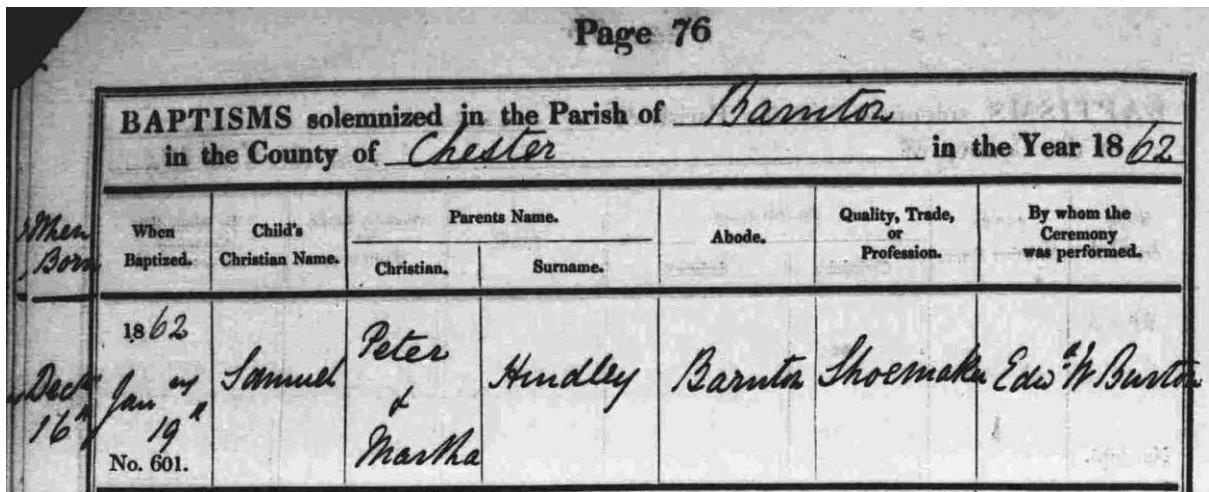 Page 76
BAPTISMS solemnized in the Parish of Barnton
in the County of Chester in the Year 1862
When Born
When Baptized.
Child's Christian Name.
Parents Name.
Christian.
Surname.
Abode.
Quality, Trade, or Profession.
By whom the Ceremony was performed.
Decr 16th
1862
Jany 19th
No. 601.
Samuel
Peter
&
Martha
Hindley
Barnton
Shoemaker
Edwd W Burton